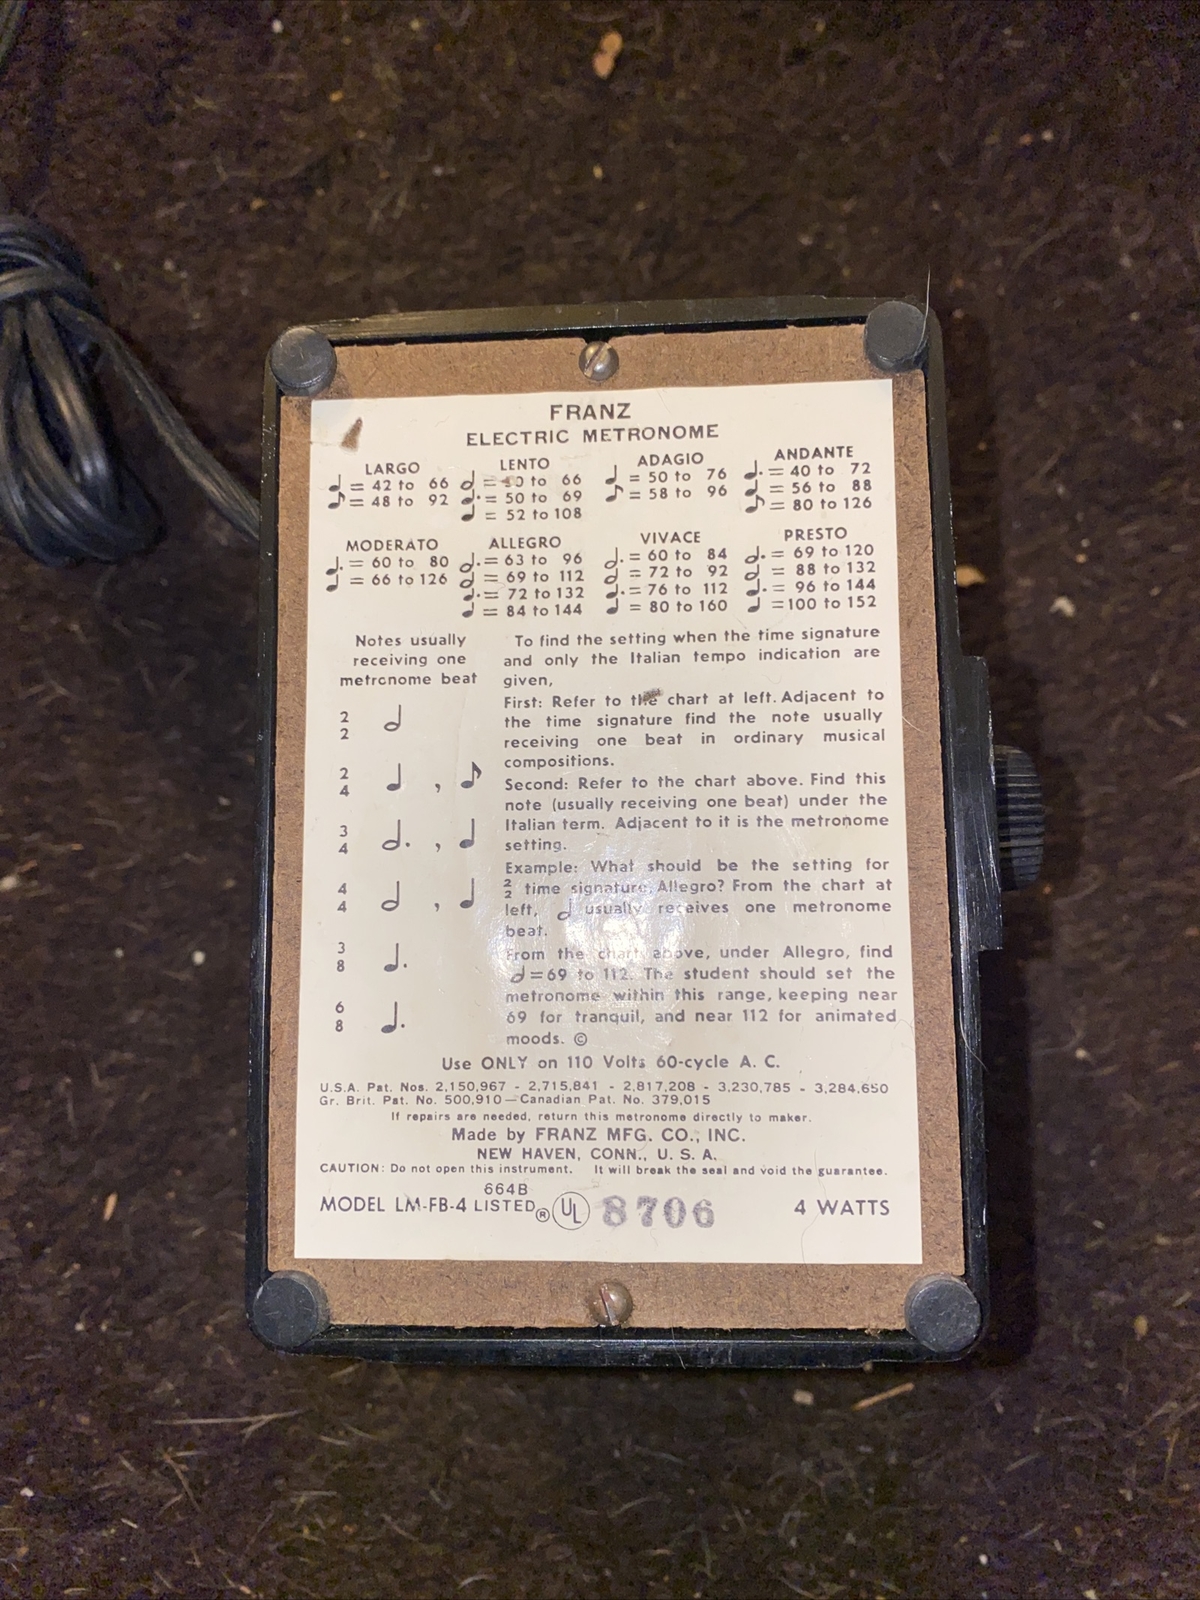 FRANZ
ELECTRIC METRONOME
LARGO
♩ = 42 to 66
♪ = 48 to 92
LENTO
𝅗𝅥 = 0 to 66
♩. = 50 to 69
♩ = 52 to 108
ADAGIO
♩ = 50 to 76
♪ = 58 to 96
ANDANTE
♩. = 40 to 72
♩ = 56 to 88
♪ = 80 to 126
MODERATO
♩. = 60 to 80
♩ = 66 to 126
ALLEGRO
𝅗𝅥. = 63 to 96
𝅗𝅥 = 69 to 112
♩. = 72 to 132
♩ = 84 to 144
VIVACE
𝅗𝅥. = 60 to 84
𝅗𝅥 = 72 to 92
♩. = 76 to 112
♩ = 80 to 160
PRESTO
𝅗𝅥. = 69 to 120
𝅗𝅥 = 88 to 132
♩. = 96 to 144
♩ =100 to 152
Notes usually
receiving one
metronome beat
2/2 𝅗𝅥
2/4 ♩ , ♪
3/4 𝅗𝅥. , ♩
4/4 𝅗𝅥 , ♩
3/8 ♩.
6/8 ♩.
To find the setting when the time signature
and only the Italian tempo indication are
given,
First: Refer to the chart at left. Adjacent to
the time signature find the note usually
receiving one beat in ordinary musical
compositions.
Second: Refer to the chart above. Find this
note (usually receiving one beat) under the
Italian term. Adjacent to it is the metronome
setting.
Example: What should be the setting for
2/2 time signature, Allegro? From the chart at
left, 𝅗𝅥 usually receives one metronome
beat.
From the chart above, under Allegro, find
𝅗𝅥=69 to 112. The student should set the
metronome within this range, keeping near
69 for tranquil, and near 112 for animated
moods. ©
Use ONLY on 110 Volts 60-cycle A. C.
U.S.A. Pat. Nos. 2,150,967 - 2,715,841 - 2,817,208 - 3,230,785 - 3,284,650
Gr. Brit. Pat. No. 500,910—Canadian Pat. No. 379,015
If repairs are needed, return this metronome directly to maker.
Made by FRANZ MFG. CO., INC.
NEW HAVEN, CONN., U. S. A.
CAUTION: Do not open this instrument. It will break the seal and void the guarantee.
664B
MODEL LM-FB-4 LISTED ® UL 8706 4 WATTS